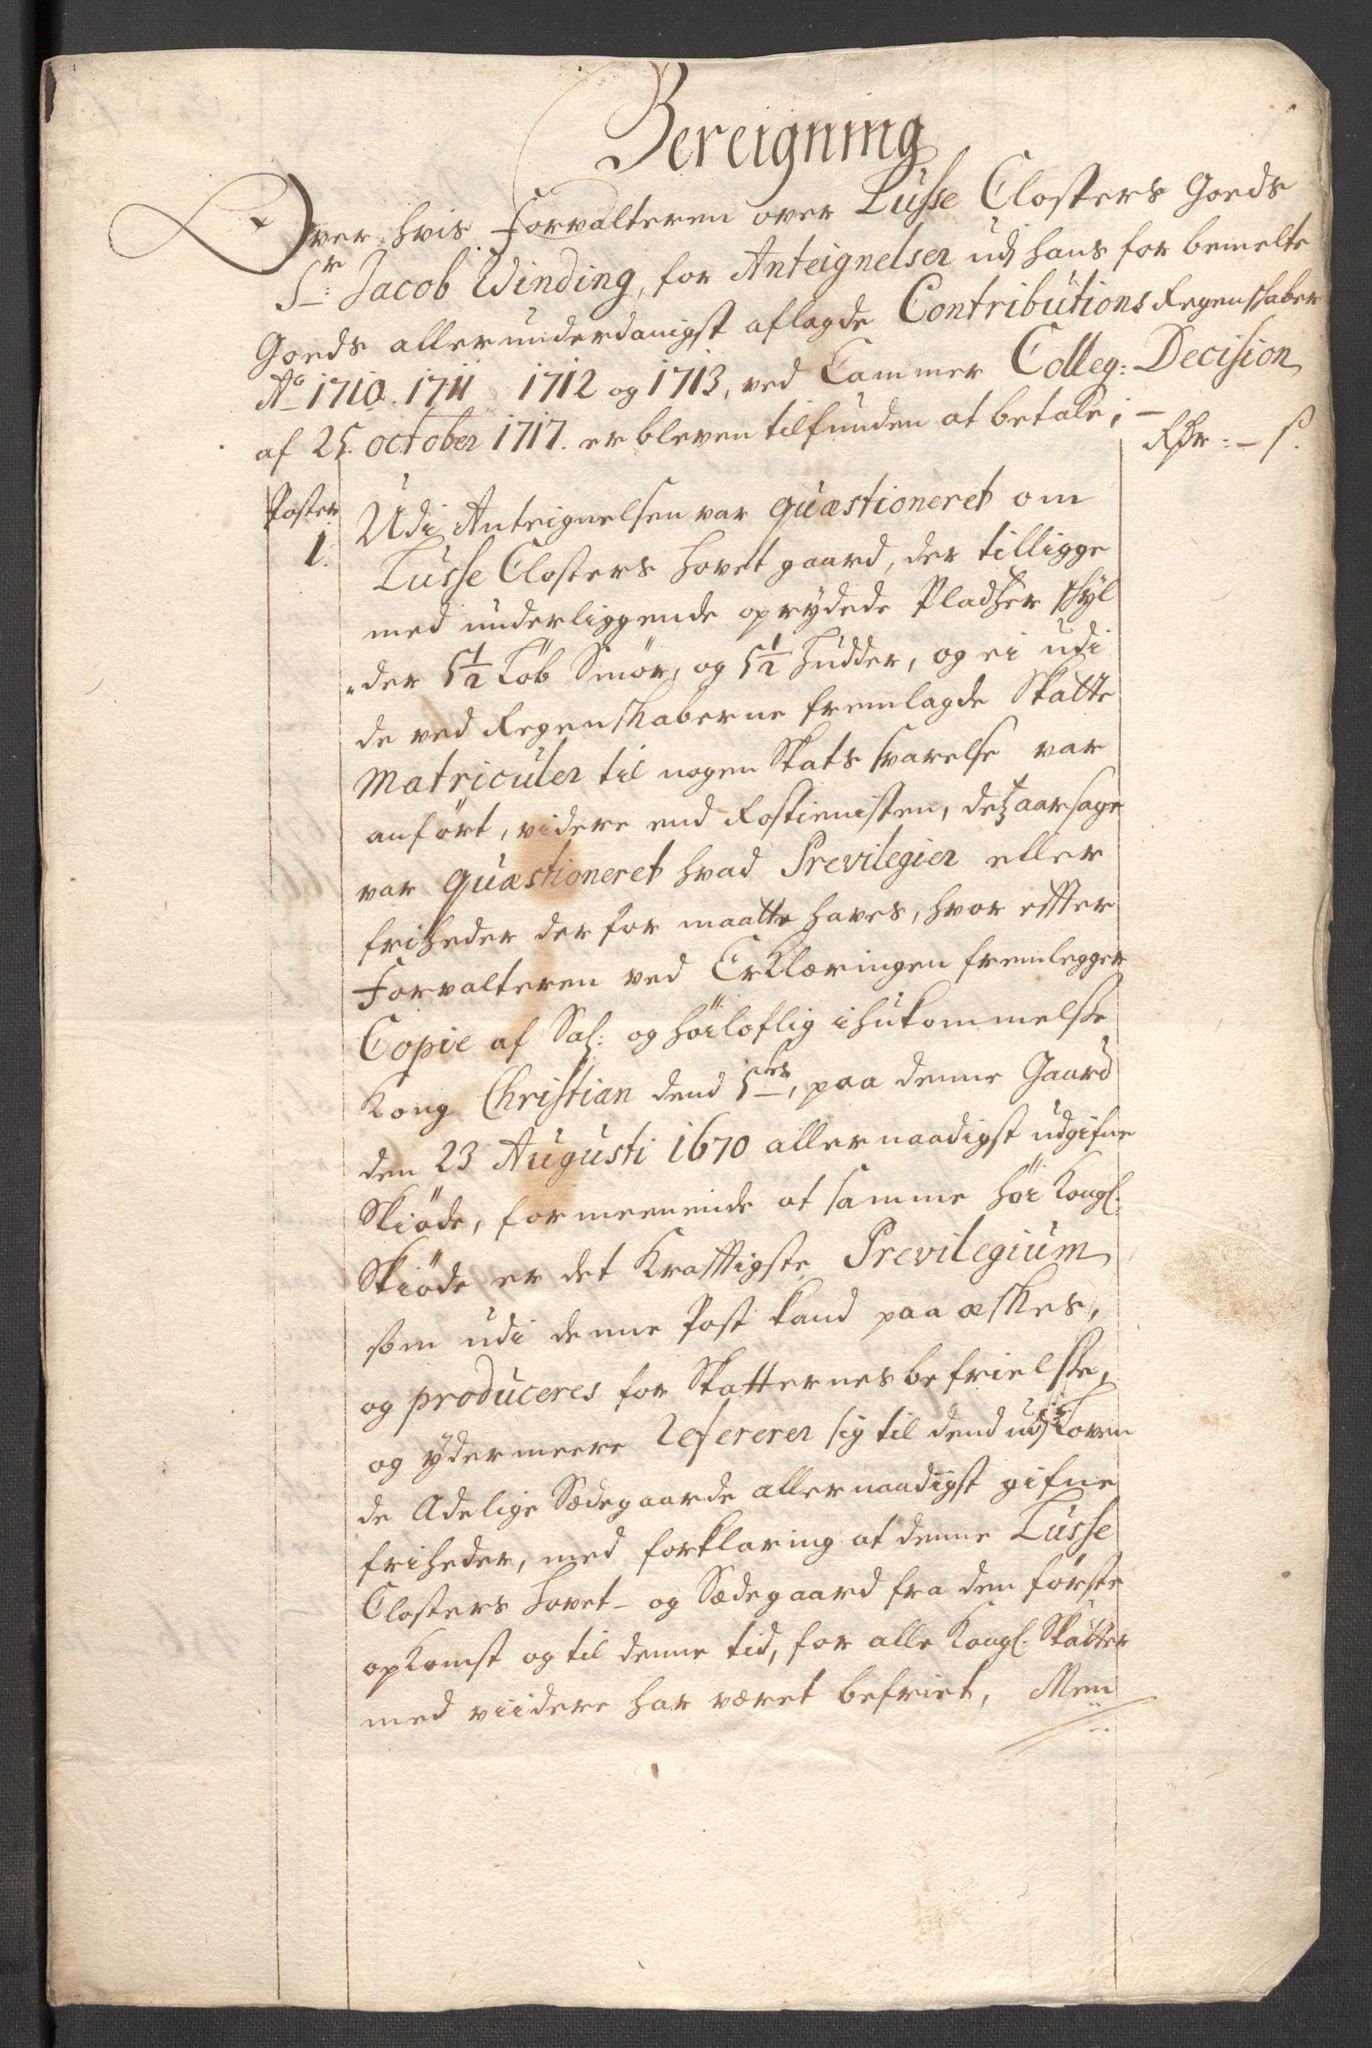 Bereigning
Over hvis Forvalteren over Lüsse Closters Goeds
Sr: Jacob Winding, for Anteignelsen udj hans for bemelte
Goeds allerunderdanigst aflagde Contributions Regenskaber
Ao 1710. 1711 1712 og 1713, ved Cammer Colleg: Decision
af 25. october 1717. er bleven tilfunden at betale; –
Rdr: – s.
Poster
1. Udi Anteignelsen var quæstioneret om
Lüsse Closters hovet gaard, der tilligge
med underliggende oprydede Pladtzer skyl
der 5½ Løb Smør, og 5½ Hudder, og ei udi
de ved Regenskaberne fremlagde Skatte
Matriculer til nogen Skats svarelse var
anført, videre end Rostienisten, detz aarsage
var quæstioneret hvad Previlegier eller
friheder der for maatte haves, hvor effter
Forvalteren ved Erklæringen fremlegger
Copie af Sal: og høiloflig ihukommelse
Kong Christian dend 5tes, paa denne Gaard
den 23 Augusti 1670 allernaadigst udgifne
Skiøde, formeenende at samme høi Kongl.
Skiøde er det Krafftigste Previlegium
som udi denne Post kand paa æskes,
og produceres for Skatternes befrielse,
og ydermeere refererer sig til dend udj Loven
de Adelige Sædegaarde allernaadigst gifne
friheder, med forklaring at denne Lüsse
Closters hovet- og Sædegaard fra den første
opkomst og til denne tid, for alle Kongl. Skatter
med viidere har været befriet, Men